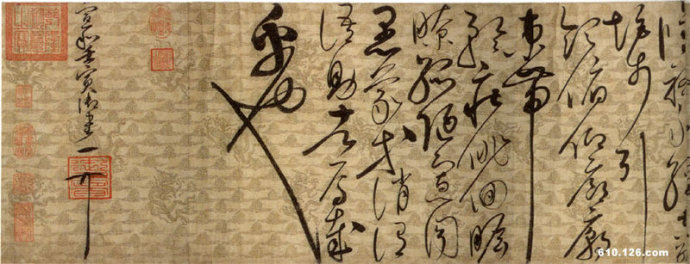 矩步引
領俯仰廊廟
束帶
矜莊徘徊瞻
眺孤陋寡聞
愚蒙等誚謂
語助者焉哉
乎也
宣和壬寅御書
610.126.com